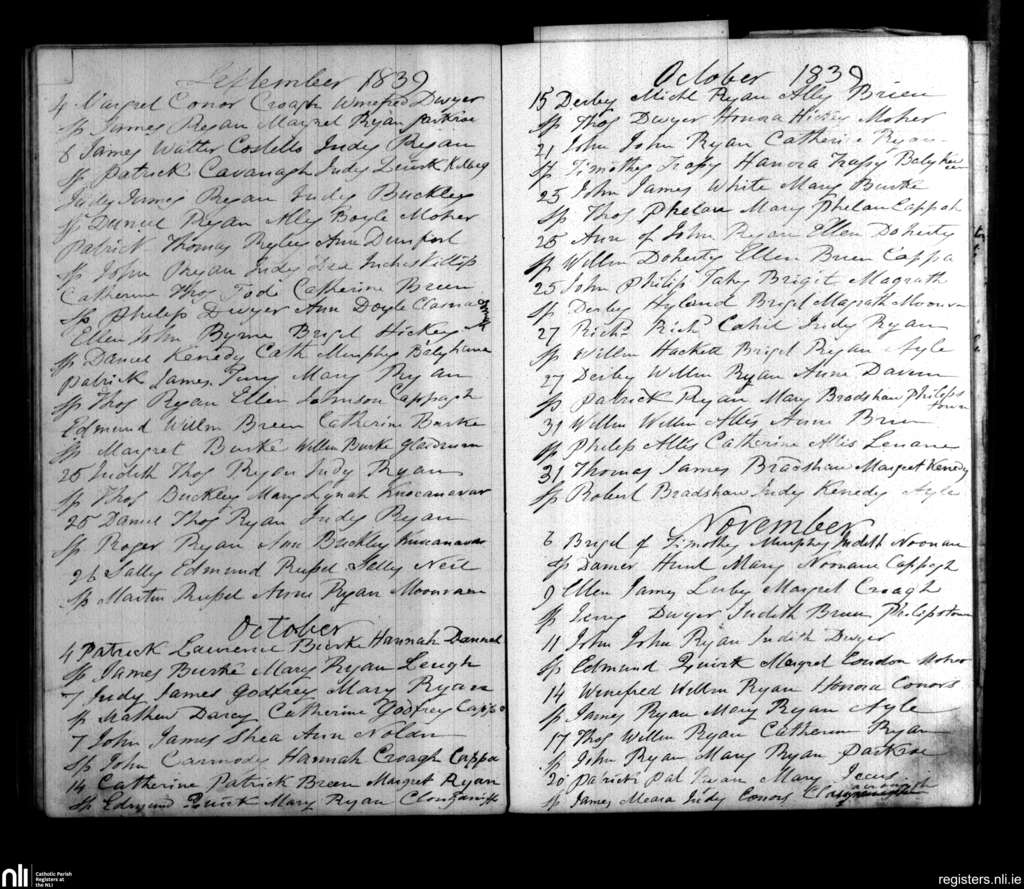 September 1839
4 Margret Conor Croagh Winefred Dwyer
Sp James Ryan Margret Ryan Parkroe
8 James Walter Costello Judy Ryan
Sp Patrick Cavanagh Judy Quirk Kilbeg
Judy James Ryan Judy Buckley
Sp Daniel Ryan Ally Boyle Moher
Patrick Thomas Ryley Ann Dunfort
Sp John Ryan Judy
Catherine Thos Catherine Breen
Sp Philip Dwyer Ann Doyle
Ellen John Byrne Brigd Hickey
Sp Daniel Kenedy Cath Murphy
Patrick James Mary Ryan
Sp Thos Ryan Ellen Johnson Cappagh
Edmund Willm Breen Catherine Burke
Sp Margret Burke Willm Burke
25 Judith Thos Ryan Judy Ryan
Sp Thos Buckley Mary Lynah Knocanavar
25 Daniel Thos Ryan Judy Ryan
Sp Roger Ryan Ann Buckley Knocanavar
26 Sally Edmund Russel Sally Neil
Sp Martin Russel Anne Ryan Moonvaen
October
4 Patrick Laurence Burke Hannah
Sp James Burke Mary Ryan Leugh
7 Judy James Godfrey Mary Ryan
Sp Mathew Darcy Catherine Godfrey Cappa
7 John James Shea Ann Nolan
Sp John Carmody Hannah Croagh Cappa
14 Catherine Patrick Breen Margret Ryan
Sp Edmund Quirk Mary Ryan
October 1839
15 Derby Michl Ryan Ally Brien
Sp Thos Dwyer Honora Hickey Moher
21 John John Ryan Catherine Ryan
Sp Timothy Trapy Hanora Trapy
25 John James White Mary Burke
Sp Thos Phelan Mary Phelan Cappah
25 Ann of John Ryan Ellen Doherty
Sp Willm Doherty Ellen Breen Cappa
25 John Philip Brigit Magrath
Sp Derby Hyland Brigd Magrath
27 Richd Richd Cahil Judy Ryan
Sp Willm Hackett Brigd Ryan Ayle
27 Derby Willm Ryan Anne
Sp Patrick Ryan Mary Bradshaw Philips
town
31 Willm Willm Allis Anne
Sp Philip Allis Catherine Allis
31 Thomas James Bradshaw Margret Kenedy
Sp Robert Bradshaw Judy Kenedy Ayle
November
6 Brigd of Timothy Murphy Judith Noonan
Sp Damer Hunt Mary Noonane Cappagh
9 Ellen James Margret Croagh
Sp Dwyer Judith Breen Philipstown
11 John John Ryan Judith Dwyer
Sp Edmund Quirk Margret Condon Moher
14 Winefred Willm Ryan Honora Conors
Sp James Ryan Mary Ryan Ayle
17 Thos Willm Ryan Catherin Ryan
Sp John Ryan Mary Ryan Parkroe
20 Patrick Pat Ryan Mary
Sp James Meara Judy Conors
nli
Catholic Parish
Registers at
the NLI
registers.nli.ie